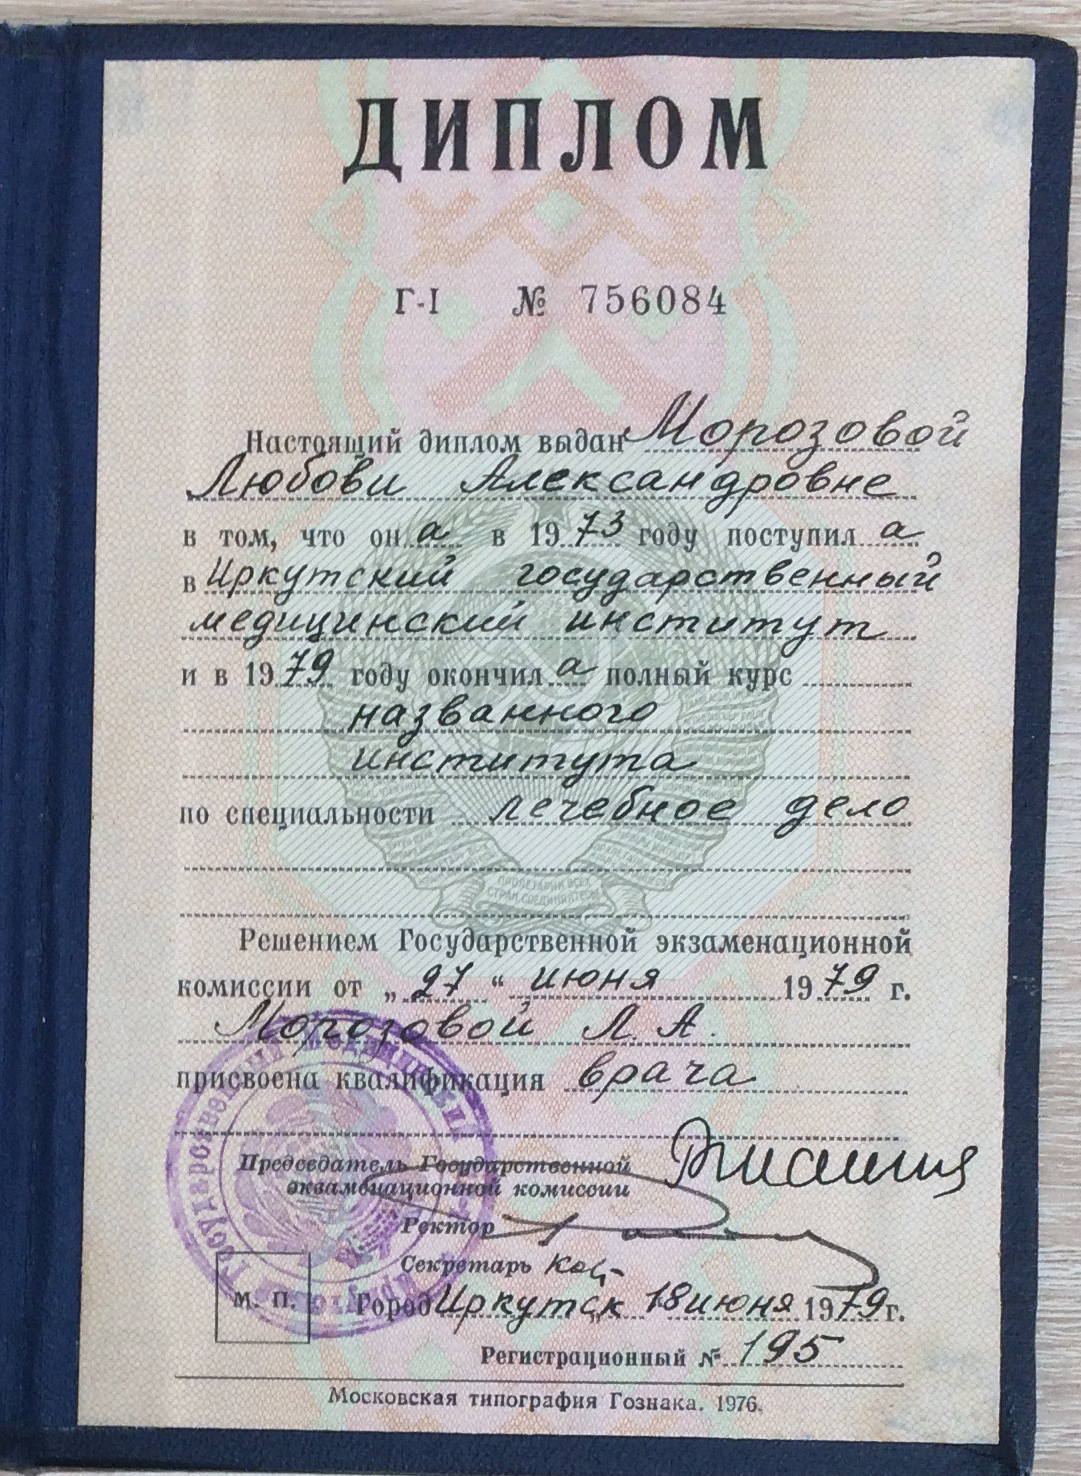 ДИПЛОМ
Г-I № 756084
Настоящий диплом выдан Морозовой
Любови Александровне
в том, что он а в 1973 году поступил а
в Иркутский государственный
медицинский институт
и в 1979 году окончил а полный курс
названного
института
по специальности лечебное дело
Решением Государственной экзаменационной
комиссии от „27“ июня 1979 г.
Морозовой Л. А.
присвоена квалификация врача
Председатель Государственной
экзаменационной комиссии
Ректор
Секретарь
М. П. Город Иркутск 18 июня 1979 г.
Регистрационный № 195
Московская типография Гознака. 1976.